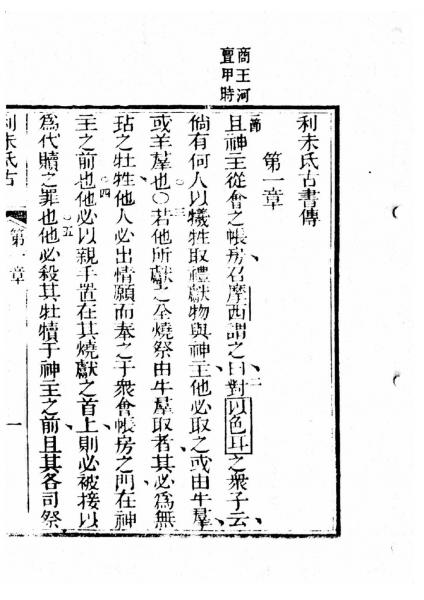 商王河
亶甲時
利未氏古書傳
第一章
節
且神主從會之帳房召摩西謂之曰對以色耳之衆子云
二
倘有何人以犧牲取禮獻物與神主他必取之或由牛羣
或羊羣也○若他所獻之全燒祭由牛羣取者其必爲無
三
玷之牡牲他人必出情願而奉之于衆會帳房之門在神
主之前也他必以親手置在其燒獻之首上則必被接以
四
爲代贖之罪也他必殺其牡犢于神主之前且其各司祭
五
利未氏古
第一章
一